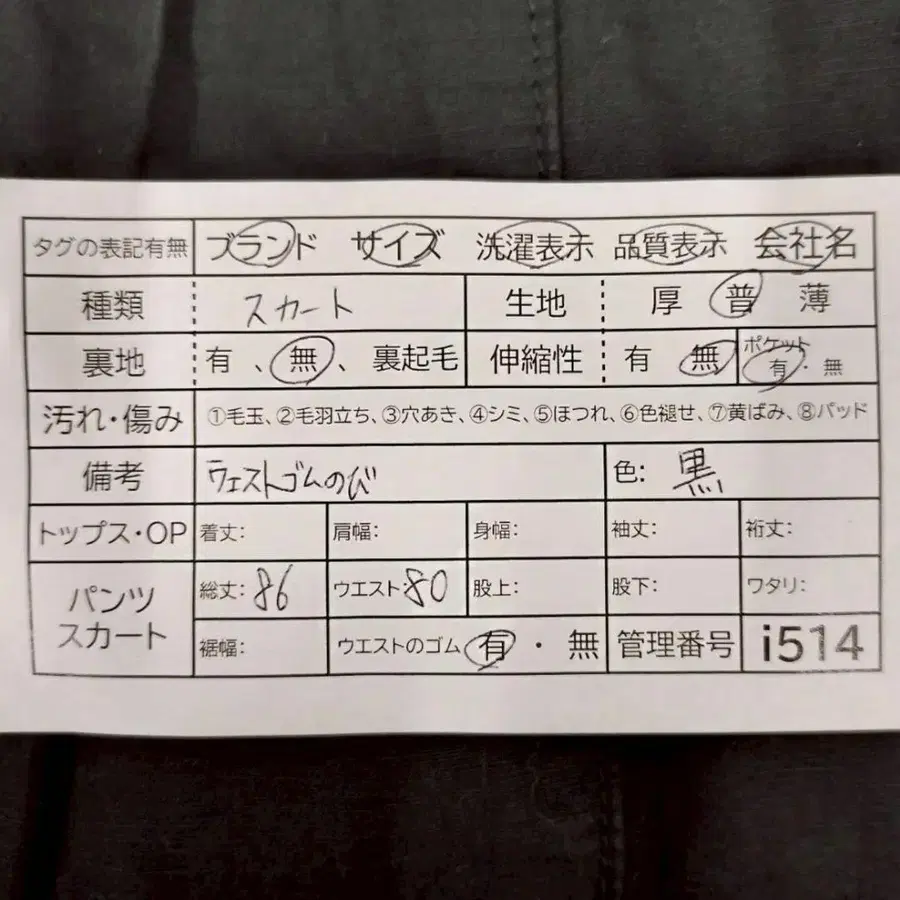 タグの表記有無 ブランド サイズ 洗濯表示 品質表示 会社名
種類 スカート 生地 厚 普 薄
裏地 有 、無、裏起毛 伸縮性 有 無 ポケット 有・無
汚れ・傷み ①毛玉、②毛羽立ち、③穴あき、④シミ、⑤ほつれ、⑥色褪せ、⑦黄ばみ、⑧パッド
備考 ウェストゴムのび 色: 黒
トップス・OP 着丈: 肩幅: 身幅: 袖丈: 裄丈:
パンツ スカート 総丈: 86 ウエスト: 80 股上: 股下: ワタリ:
裾幅: ウエストのゴム 有・無 管理番号 i514